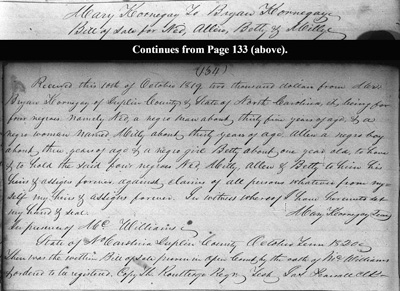 Mary Kornegay To Bryan Kornegay
Bill of Sale for Ned, Allen, Betty & Mittye
Continues from Page 133 (above).
(134)
Received this 10th of October 1819 two thousand dollars from
Bryan Kornegay of Duplin County & State of North Carolina, it being for
four negroes Namely Ned, a negro man about thirty five years of age & a
negro woman named Mitty about thirty years of age Allen a negro boy
about three years of age & a negro girl Betty about one year old to have
& to hold the said four negroes Ned Mitty Allen & Betty to him his
heirs & assigns forever against claims of all persons whatever from my
self my heirs & assigns forever. In witness whereof I have hereunto set
my hand & seal. Mary Kornegay
In presence of Mc Williams
State of No Carolina Duplin County October Term
Then was the within Bill of Sale proven in open Court by the oath of Mc Williams
& ordered to be registered. Copy Test Jas Pearsall